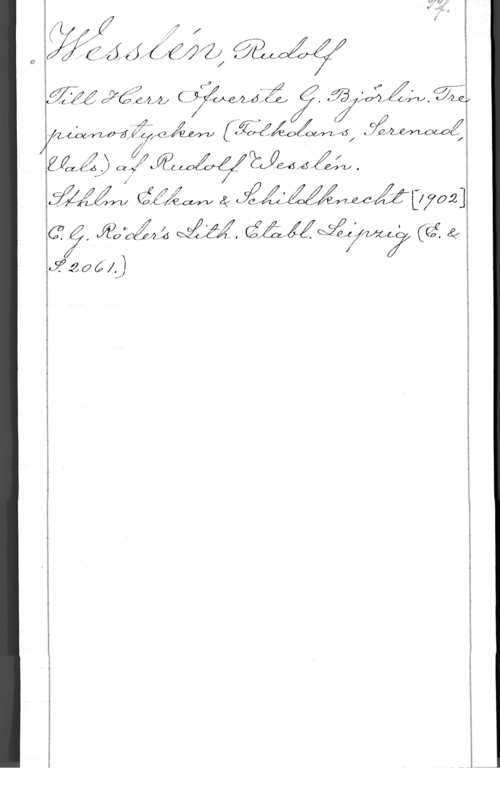 Wesslén, Rudolf
Till Herr Öfverste G. Björlin. Tre
pianostycken (Folkdans, Serenad,
Vals.) af Rudolf Wesslén.
Sthlm Elkan & Schildknecht [1902]
C. G. Röder's Lith. Etabl. Leipzig (E. &
S. 2061.)